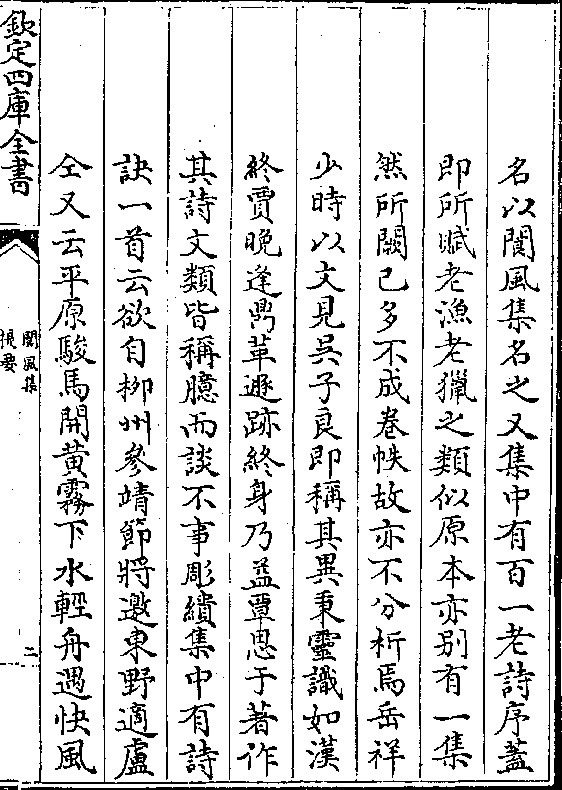 名以閬風集名之又集中有百一老詩序蓋
即所賦老漁老獵之類似原本亦别有一集
然所闕已多不成卷帙故亦不分析焉岳祥
少時以文見吳子良即稱其異秉靈識如漢
終賈晚逢鼎革遯跡終身乃益覃思于著作
其詩文類皆稱臆而談不事彫繢集中有詩
訣一首云欲自柳州參靖節將邀東野適盧
仝又云平原駿馬開黄霧下水輕舟遇快風
欽定四庫全書
閬風集
提要
二